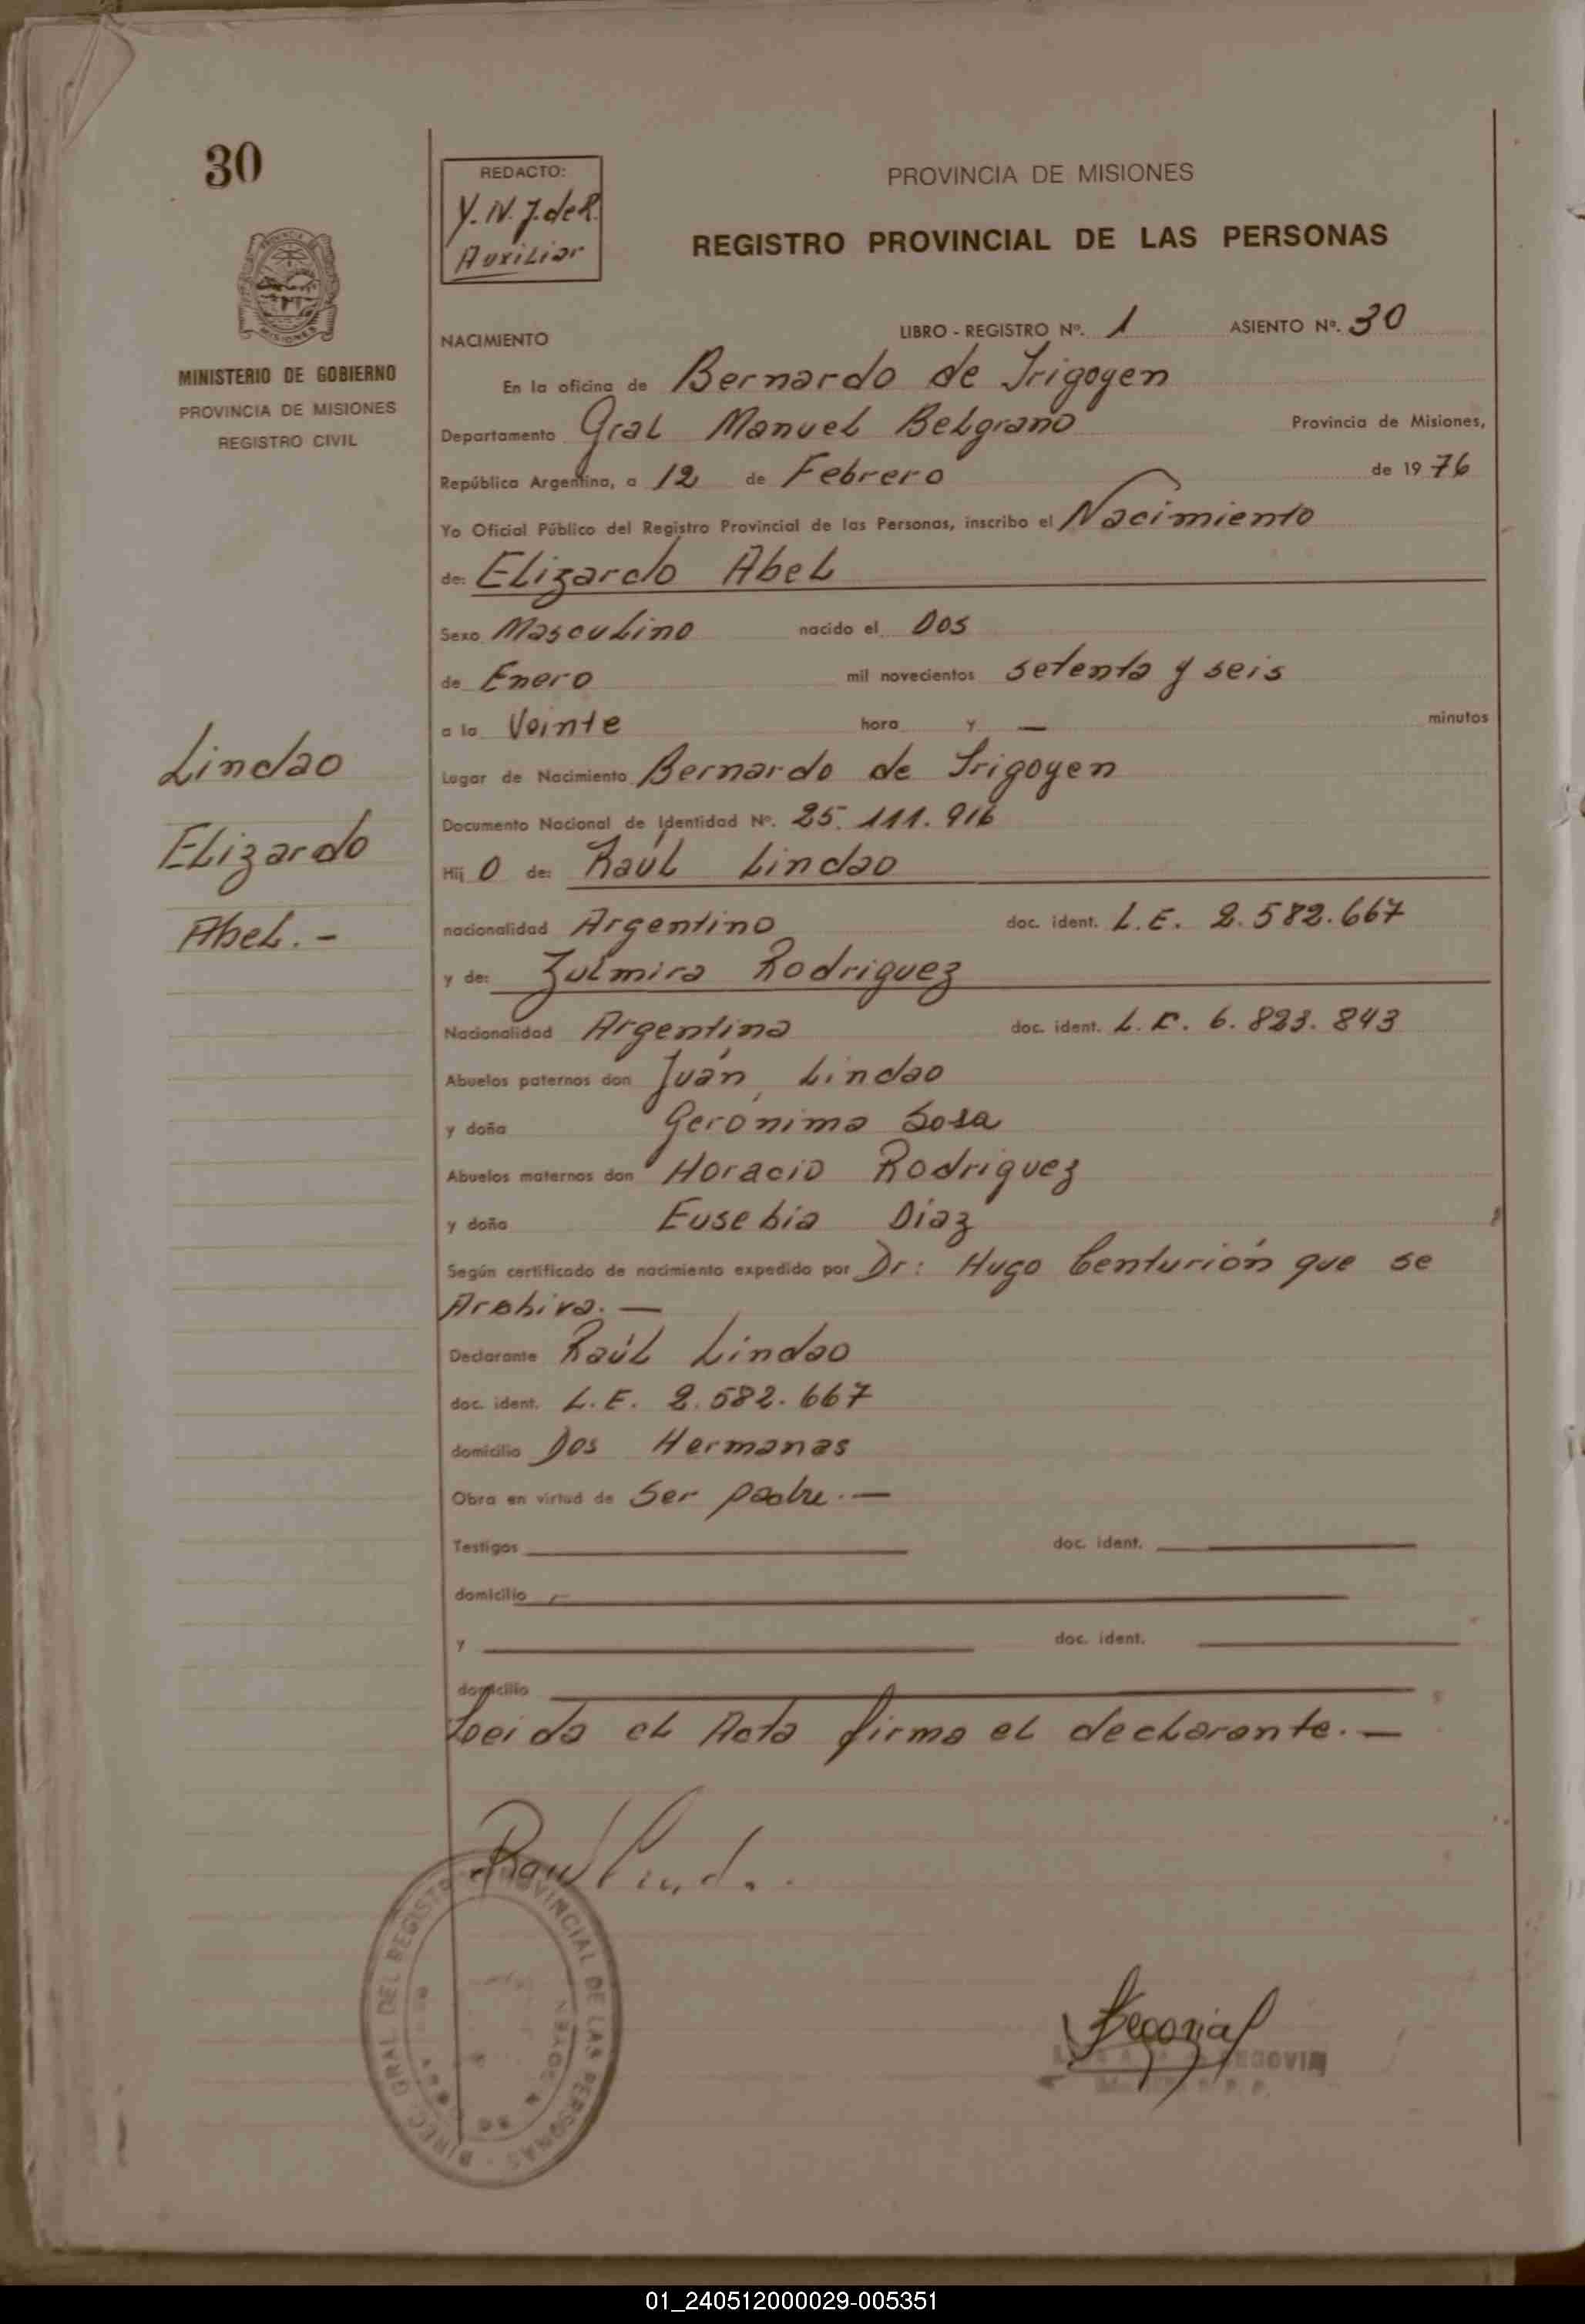 30
REDACTO:
Y. N. J. de R.
Auxiliar
PROVINCIA DE MISIONES
REGISTRO PROVINCIAL DE LAS PERSONAS
MINISTERIO DE GOBIERNO
PROVINCIA DE MISIONES
REGISTRO CIVIL
NACIMIENTO LIBRO - REGISTRO Nº. 1 ASIENTO Nº. 30
En la oficina de Bernardo de Irigoyen
Departamento Gral Manuel Belgrano Provincia de Misiones,
República Argentina, a 12 de Febrero de 1976
Yo Oficial Público del Registro Provincial de las Personas, inscribo el Nacimiento
de: Elizardo Abel
Sexo Masculino nacido el Dos
de Enero mil novecientos setenta y seis
a la Veinte hora y — minutos
Lindao
Elizardo
Abel. -
Lugar de Nacimiento Bernardo de Irigoyen
Documento Nacional de Identidad Nº. 25.111.916
Hij o de: Raúl Lindao
nacionalidad Argentino doc. ident. L.E. 2.582.667
y de: Zulmira Rodriguez
Nacionalidad Argentina doc. ident. L.C. 6.823.843
Abuelos paternos don Juán Lindao
y doña Gerónima Sosa
Abuelos maternos don Horacio Rodriguez
y doña Eusebia Diaz
Según certificado de nacimiento expedido por Dr: Hugo Centurión que se
Archiva. —
Declarante Raúl Lindao
doc. ident. L.E. 2.582.667
domicilio Dos Hermanas
Obra en virtud de Ser padre. —
Testigos doc. ident.
domicilio
y doc. ident.
domicilio
Leida el Acta firma el declarante. —
Raul Lind
DIREC. GRAL DEL REGISTRO PROVINCIAL DE LAS PERSONAS
Segovia
01_240512000029-005351